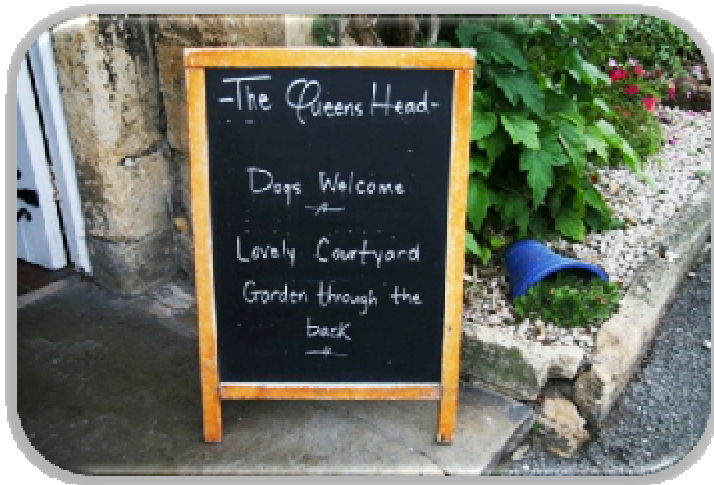 -The Queens Head-
Dogs Welcome
Lovely Courtyard
Garden through the
back